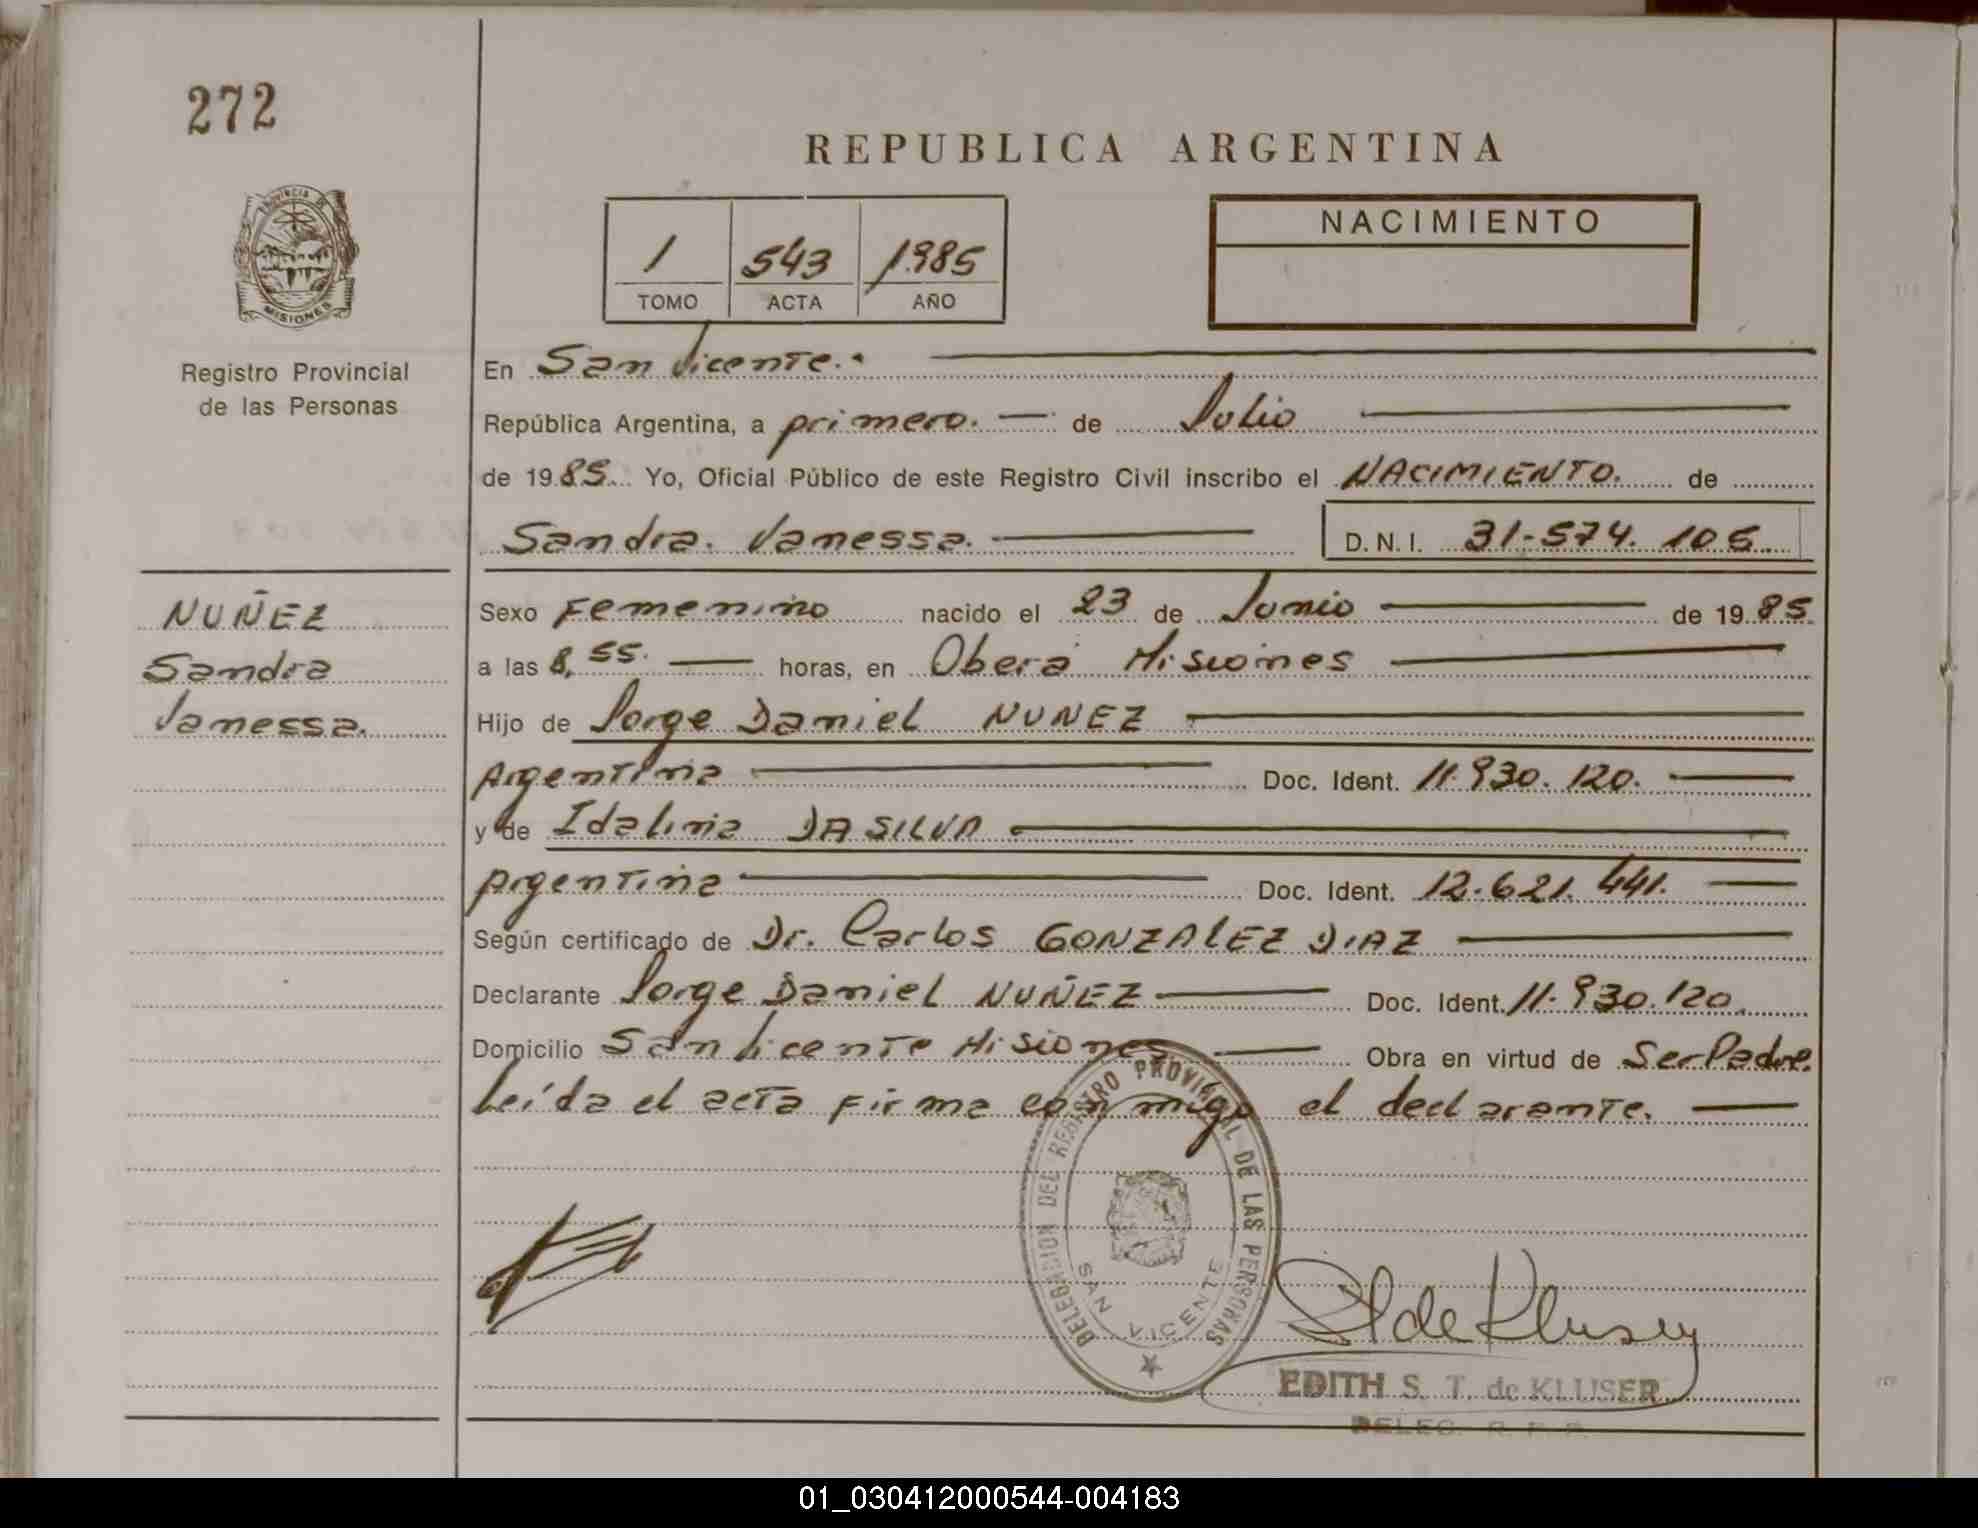 272
REPUBLICA ARGENTINA
PROVINCIA DE
MISIONES
Registro Provincial
de las Personas
1 543 1985
TOMO ACTA AÑO
NACIMIENTO
En San Vicente.
República Argentina, a primero. de Julio
de 1985. Yo, Oficial Público de este Registro Civil inscribo el NACIMIENTO. de
Sandra. Vanessa. D.N.I. 31-574.106
NUÑEZ
Sandra
Vanessa.
Sexo Femenino nacido el 23 de Junio de 1985.
a las 8,55. horas, en Oberá Misiones
Hijo de Jorge Daniel NUNEZ
Argentina Doc. Ident. 11.930.120.
y de Idalina DA SILVA
Argentina Doc. Ident. 12.621.441.
Según certificado de Dr. Carlos GONZALEZ DIAZ
Declarante Jorge Daniel NUÑEZ Doc. Ident. 11.930.120
Domicilio San Vicente Misiones Obra en virtud de Ser Padre.
Leída el acta firma conmigo el declarante.
DELEGACION DEL REGISTRO PROVINCIAL DE LAS PERSONAS
SAN VICENTE
S T de Kluser
EDITH S. T. de KLUSER
DELEG. R. P. P.
01_030412000544-004183